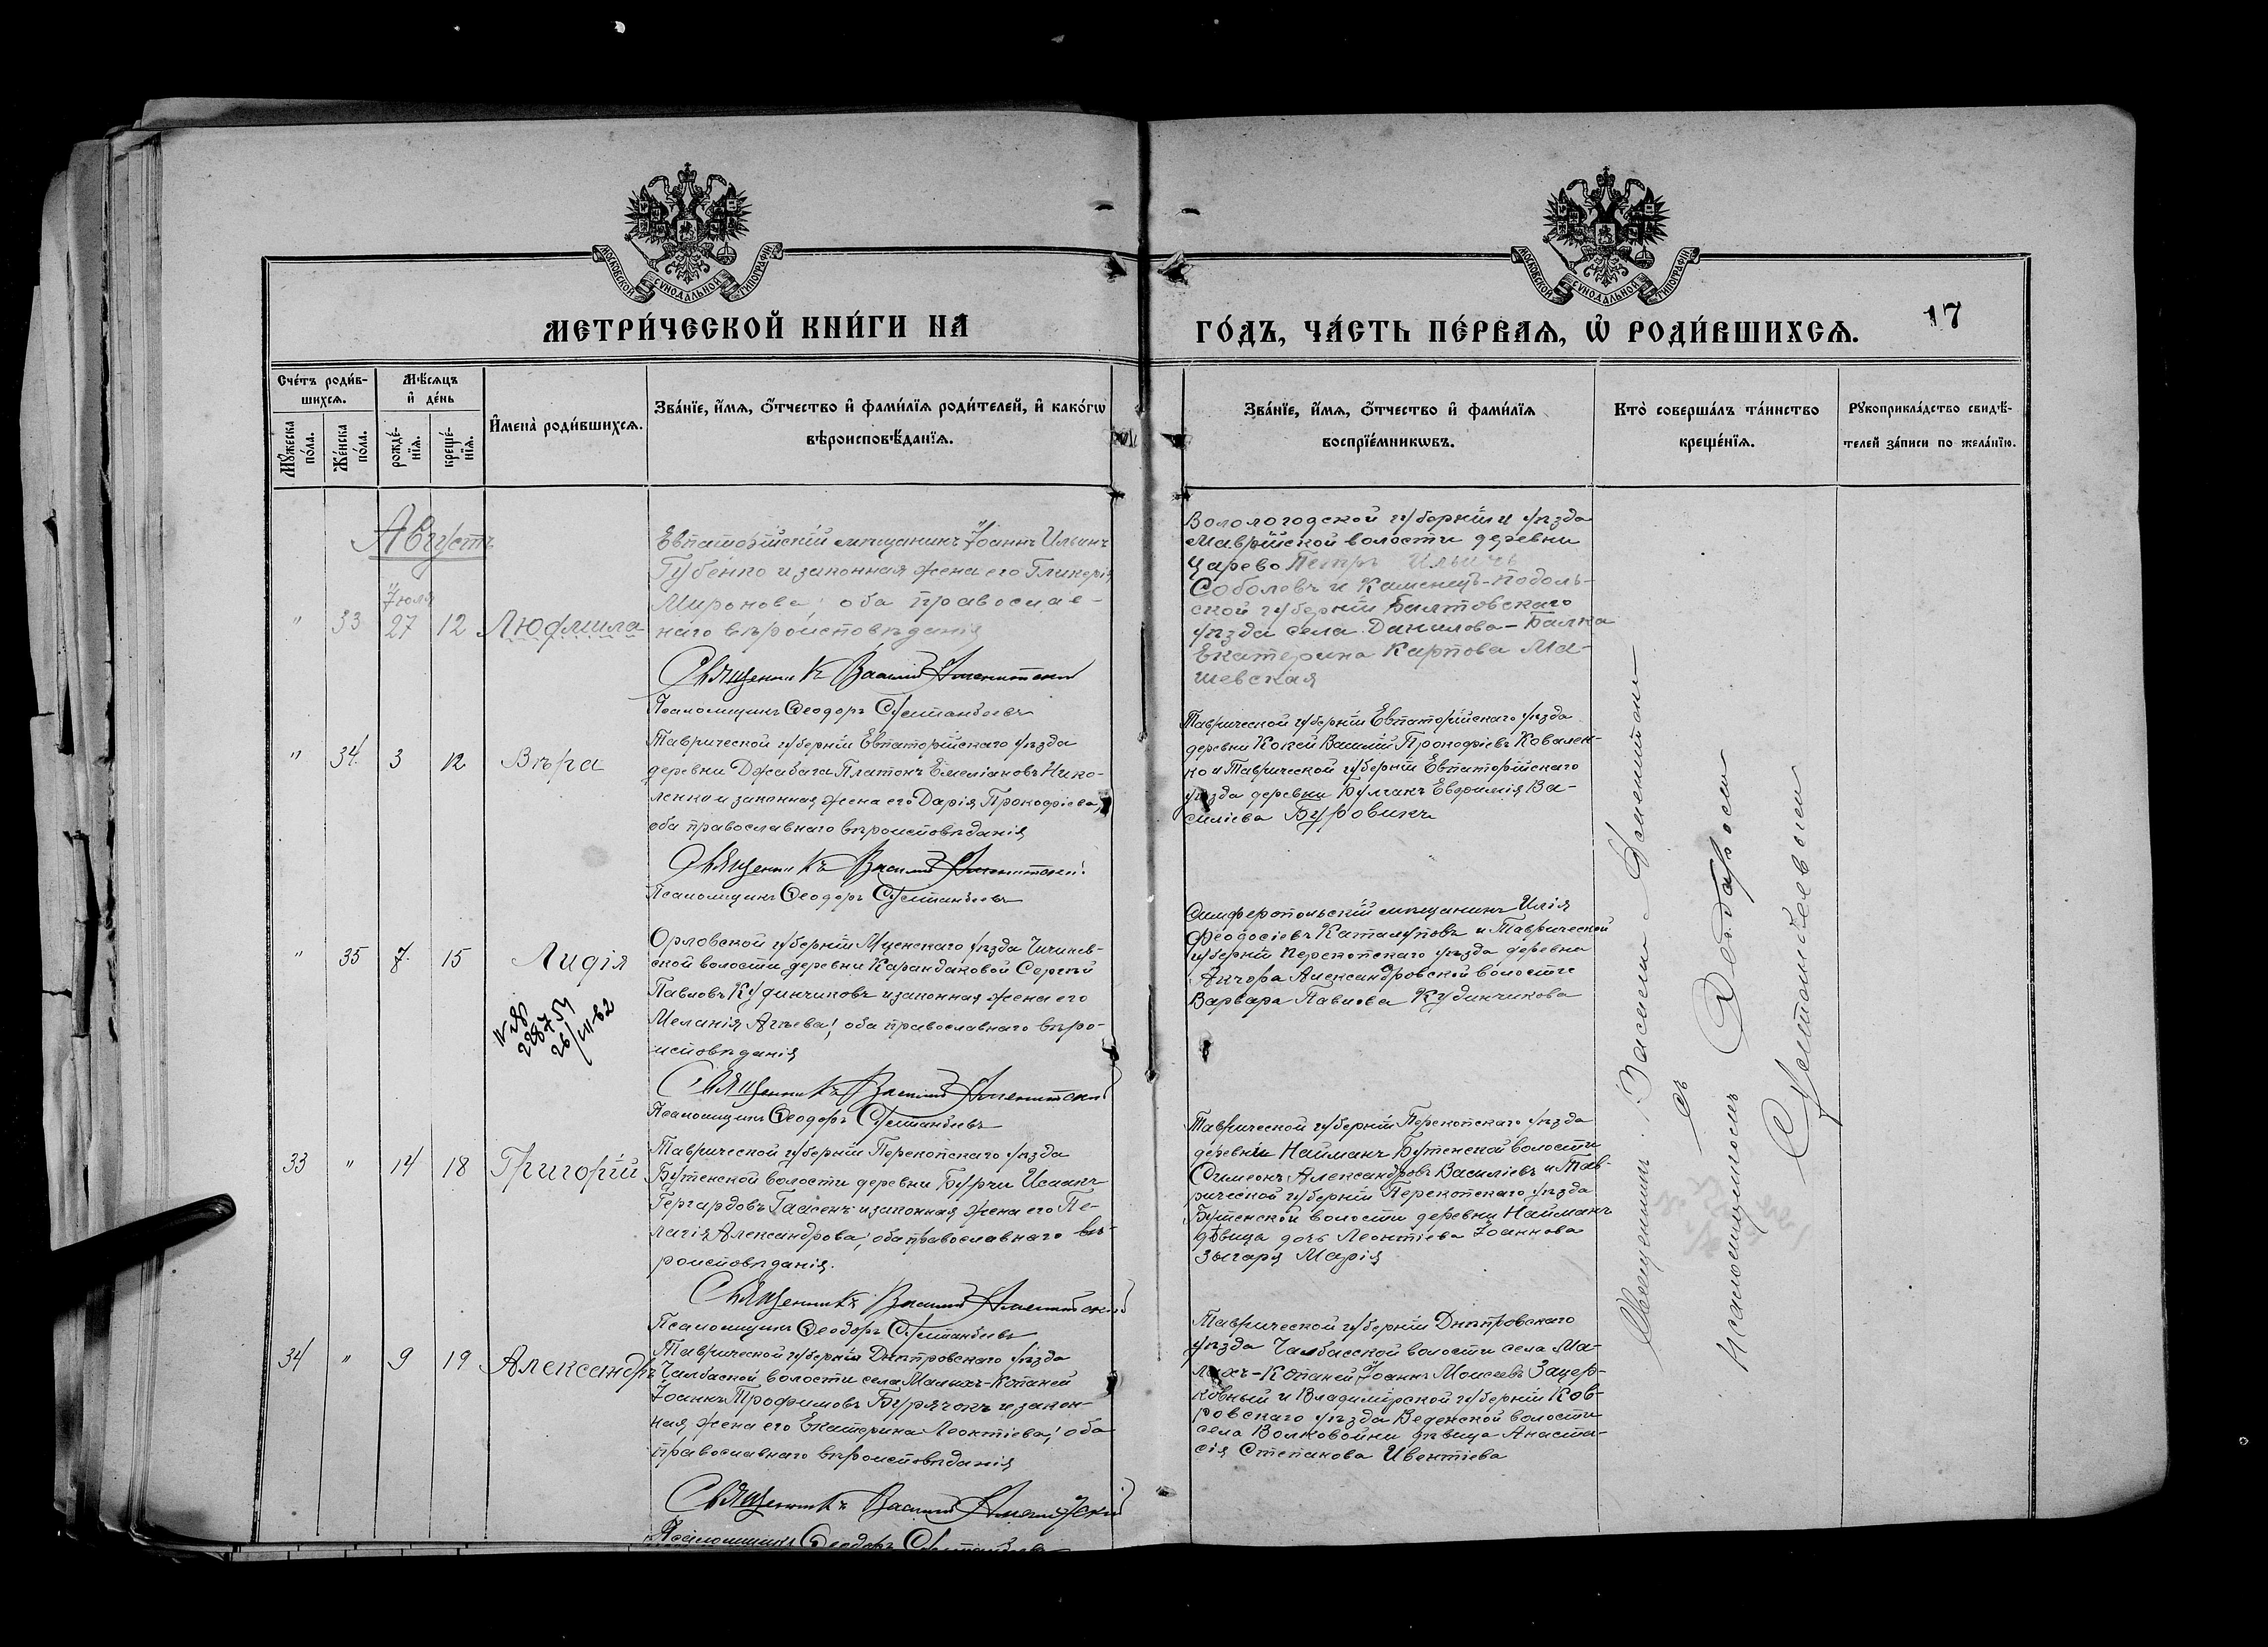 МОСКОВСКОЙ СУНОДАЛЬНОЙ ТИПОГРАФІИ
МОСКОВСКОЙ СУНОДАЛЬНОЙ ТИПОГРАФІИ
МЕТРИ́ЧЕСКОЙ КНИ́ГИ НА
ГО́ДЪ, ЧА́СТЬ ПЕ́РВАѦ, Ѡ РОДИ́ВШИХСѦ.
17
Сче́тъ роди́в-
шихсѧ.
Мꙋ́жеска по́ла.
Же́нска по́ла.
Мѣ́сѧцъ
и де́нь
рожде́-
нїѧ.
креще́-
нїѧ.
Имена̀ роди́вшихсѧ.
Зва́нїе, и́мѧ, ѻ́тчество и фами́лїѧ роди́телей, и како́гѡ
вѣроисповѣ́данїѧ.
Зва́нїе, и́мѧ, ѻ́тчество и фами́лїѧ
воспрїе́мникѡвъ.
Кто̀ соверша́лъ та́инство
креще́нїѧ.
Рꙋкоприкла́дство свидѣ́-
телей за́писи по жела́нїю.
Августъ
"
33
Іюля
27
12
Людмила
Евпаторійскій мѣщанинъ Іоаннъ Ильинъ
Губенко и законная жена его Гликерія
Миронова; оба православ-
наго вѣроисповѣданія
Священникъ Василій
Псаломщикъ Ѳеодоръ
Вологодской губерніи уѣзда
Маврійской волости деревни
Царево Петръ Ильичъ
Соболевъ и Каменецъ-Подоль-
ской губерніи Балтовскаго
уѣзда села Данилова-Балка
Екатерина Карпова Ма-
шевская
"
34.
3
12
Вѣра
Таврической губерніи Евпаторійскаго уѣзда
деревни Джабага Платонъ Емеліановъ Нико-
ленко и законная жена его Дарія Прокофіева,
оба православнаго вѣроисповѣданія
Священникъ Василій
Псаломщикъ Ѳеодоръ
Таврической губерніи Евпаторійскаго уѣзда
деревни Кокей Василій Прокофіевъ Ковален-
ко и Таврической губерніи Евпаторійскаго
уѣзда деревни Евфимія Ва-
силіева Буровикъ
"
35
7
15
Лидія
Орловской губерніи Мценскаго уѣзда
ской волости деревни Карандаковой Сергѣй
Павловъ Кудинчиковъ и законная жена его
Меланія Агѣева; оба православнаго вѣро-
исповѣданія
Священникъ Василій
Псаломщикъ Ѳеодоръ
Симферопольскій мѣщанинъ Илія
Феодосіевъ и Таврической
губерніи Перекопскаго уѣзда деревни
Александровской волости
Варвара Павлова Кудинчикова
33
"
14
18
Григорій
Таврической губерніи Перекопскаго уѣзда
Бютенской волости деревни Бурчи Исаакъ
Гергардовъ и законная жена его Пе-
лагія Александрова; оба православнаго вѣ-
роисповѣданія.
Священникъ Василій
Псаломщикъ Ѳеодоръ
Таврической губерніи Перекопскаго уѣзда
деревни Найманъ Бютенской волости
Сѵмеонъ Александровъ Василіевъ и Тав-
рической губерніи Перекопскаго уѣзда
Бютенской волости деревни Найманъ
дѣвица дочь Леонтіева Іоаннова
Марія
34
"
9
19
Александръ
Таврической губерніи Днѣпровскаго уѣзда
Чалбаской волости села Малыхъ-Копаней
Іоаннъ Трофимовъ Бурячокъ и закон-
ная жена его Екатерина Леонтіева; оба
православнаго вѣроисповѣданія
Священникъ Василій
Псаломщикъ Ѳеодоръ
Таврической губерніи Днѣпровскаго
уѣзда Чалбасской волости села Ма-
лыхъ-Копаней Іоаннъ Моисеевъ Зацер-
ковный и Владимірской губерніи Ков-
ровскаго уѣзда Веденской волости
села Волковойни дѣвица Анаста-
сія Степанова Ивентіева
Священникъ Василій
съ
Псаломщикомъ Ѳеодоромъ